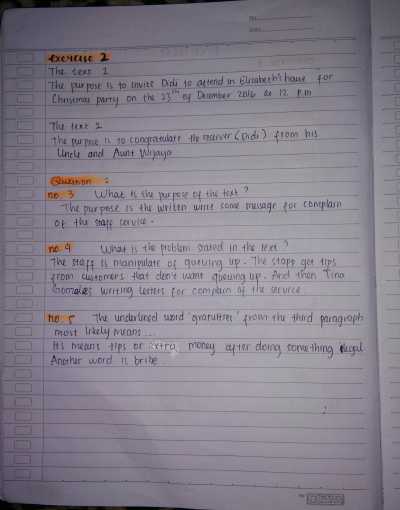 No.
Date
exercise 2
The text 1
The purpose is to invite Didi to attend in Elizabeth's house for
Christmas party on the 23th of December 2016 at 12 P.m
The text 2
The purpose is to congratulate the receiver (Didi) from his
Uncle and Aunt Wijaya
Question :
no. 3 What is the purpose of the text ?
The purpose is the written write some message for complain
of the staff service.
no. 4 What is the problem stated in the text ?
The staff is manipulate of queuing up. The staff get tips
from customers that don't want queuing up. And then Tina
Gonzales writing letters for complain of the service
no. 5 The underlined word 'gratuities' from the third paragraph
most likely means ...
It's means tips or extra money after doing something illegal
Another word is bribe